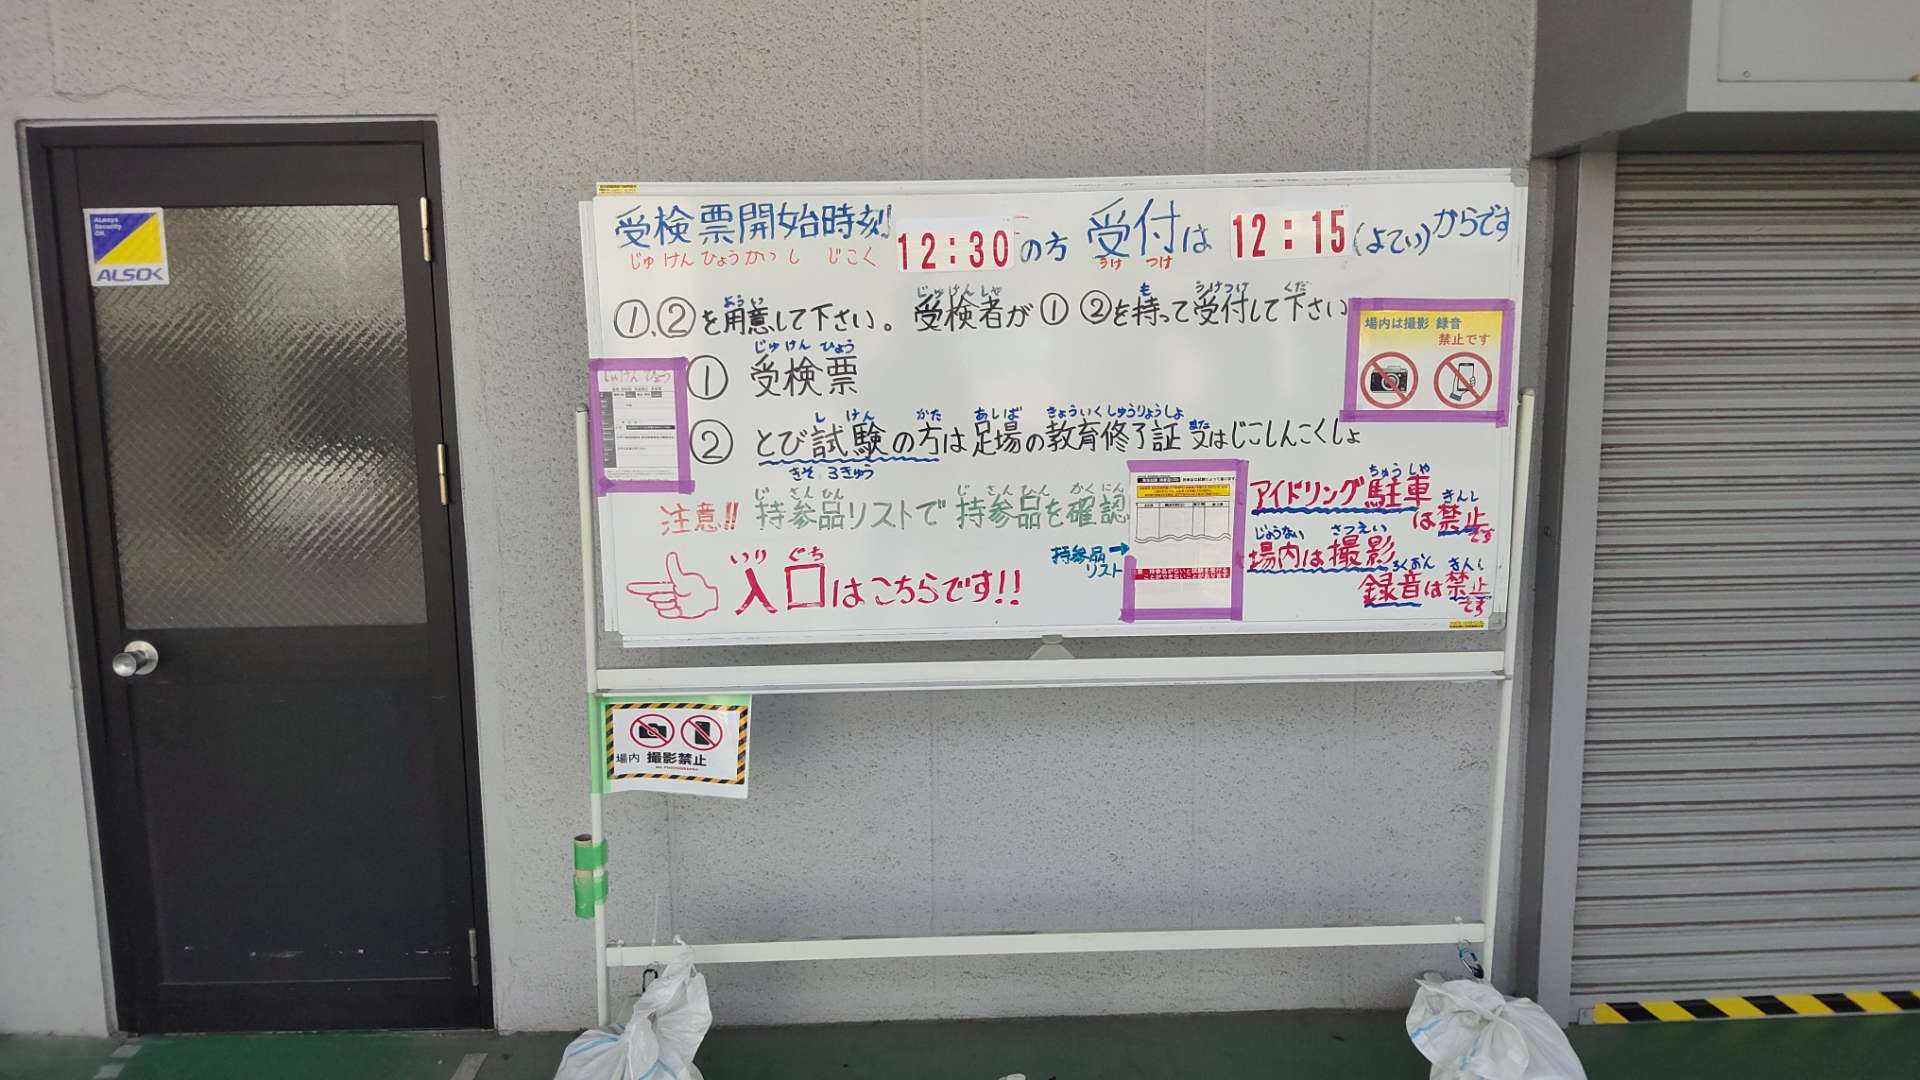 ALways
Security
OK
ALSOK
受検票開始時刻 12:30の方 受付は 12:15(よてい)からです
じゅ けん ひょう かい し じこく うけ つけ
①、②を用意して下さい。受検者が①②を持って受付して下さい
ようい じゅけんしゃ も うけつけ くだ
場内は撮影 録音
禁止です
じゅけん ひょう
じゅ けん ひょう
① 受検票
し けん かた あしば きょういくしゅうりょうしょ また
② とび試験の方は足場の教育修了証 又はじこしんこくしょ
きそ 3きゅう
じ さんひん じ さんひん かくにん
注意!! 持参品リストで 持参品を確認
持参品
リスト
ちゅうしゃ
アイドリング駐車
きんし
は禁止です
じょうない さつえい
場内は撮影
ろくおん きんし
録音は禁止です
いり ぐち
入口はこちらです!!
場内 撮影禁止